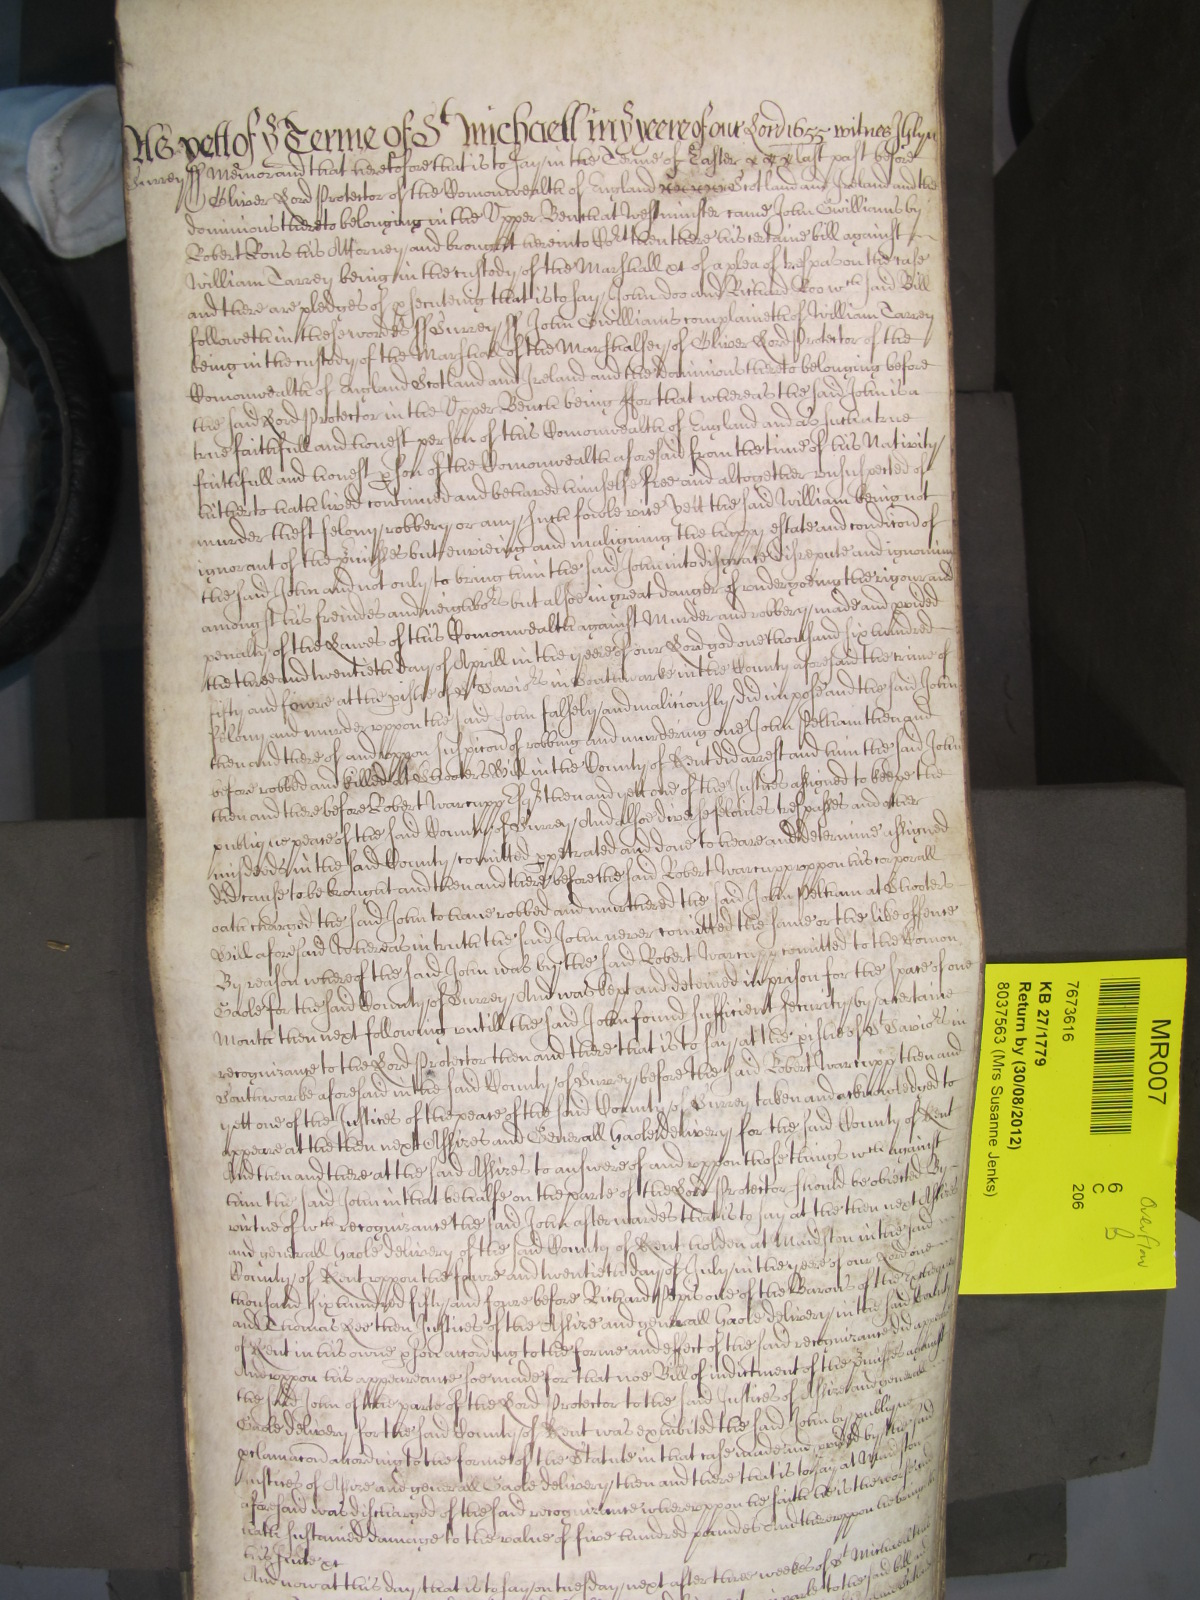 As yett of ye Terme of St Michaell in ye yeere of our Lord 1655 witnes J Glyn
Surrey ss Memorand that heretofore that is to say in the Terme of Easter last past before
Oliver Lord Protector of the Comonwealth of England Scotland and Ireland and the
dominions thereto belonging in the Upper Bench at Westminster came John Gwilliams by
Robert Rous his Attorney and brought here into Cort then there his certaine bill against
William Tarrey being in the custody of the Marshall &c of a plea of trespas on the case
and there are pledges of psecuteing that is to say John doo and Richard Roo wch said Bill
followeth in these wordes ss Surrey ss John Gwilliams complaineth of William Tarrey
being in the custody of the Marshall of the Marshalsey of Oliver Lord Protector of the
Comonwealth of England Scotland and Ireland and the Dominions thereto belonging before
the said Lord Protector in the Upper Bench being ffor that whereas the said John is a
true faithfull and honest person of this Comonwealth of England and as such a true
faithfull and honest pson of the Comonwealth aforesaid from the time of his Nativity
hitherto hath lived continued and behaved himselfe ffree and altogether unsuspected of
murder theft felony robbery or any such fowle vice yett the said William being not
ignorant of the pmisses but envieing and maligning the happy estate and condicon of
the said John and not only to bring him the said John into disgrace disrepute and ignominy
amongst his freindes and neighbors but alsoe in great danger of undergoeing the rigour and
penalty of the Lawes of this Comonwealth against Murder and robbery made and pvided
the three and twentieth day of Aprill in the yeere of our Lord god one thousand six hundred
fifty and fowre at the pishe of St Saviors in Southwarke in the County aforesaid the crime of
felony and murder uppon the said John falsely and malitiously did impose and the said John
then and there of and uppon suspicon of robbing and murdering one John Pelham then and
before robbed and killed att Shooters Hill in the County of Kent did arrest and him the said John
then and there before Robert Warcupp Esqr then and yett one of the Justices assigned to keepe the
publique peace of the said County of Surrey And alsoe diverse felonies trespasses and other
misdeeds in the said County comitted ppetrated and done to heare and determine assigned
did cause to be brought and then and there before the said Robert Warcupp uppon his corporall
oath charged the said John to have robbed and murthered the said John Pelham at Shooters
Hill aforesaid Whereas in truth the said John never comitted the same or the like offence
By reason whereof the said John was by the said Robert Warcupp comitted to the Comon
Gaole for the said County of Surrey And was kept and deteined in prison for the space of one
Month then next following untill the said John found sufficient security by a certaine
recognizance to the Lord Protector then and there that is to say at the pishe of St Saviors in
Southwarke aforesaid in the said County of Surrey before the said Robert Warcupp then and
yett one of the Justices of the peace of the said County of Surrey taken and acknowledged to
appeare at the then next Assizes and Generall Gaole delivery for the said County of Kent
And then and there at the said Assizes to answere of and uppon those things wch against
him the said John in that behalfe on the parte of the Lord Protector should be obiected By
virtue of wch recognizance the said John afterwardes that is to say at the then next Assizes
and generall Gaole delivery of the said County of Kent holden at Maidston in the said
County of Kent uppon the fowre and twentieth day of July in the yeere of our Lord one
thousand six hundred fifty and fowre before Richard Pepis one of the Barons of the
and Thomas Lee then Justices of the Assize and generall Gaole delivery in the said County
of Kent in his owne pson according to the forme and effect of the said recognizance did appeare
And uppon his appeareance soe made for that noe Bill of indictment of the pmisses against
the said John of the parte of the Lord Protector to the said Justices of Assize and generall
Gaole delivery for the said County of Kent was exhibited the said John by publique
pclamacon according to the forme of the Statute in that case made and pvided by the said
Justices of Assize and generall Gaole delivery then and there that is to say at Maidston
aforesaid was discharged of the said recognizance whereuppon he saith he is the worse and
hath sustained damage to the value of five hundred poundes And thereuppon he brings
his suite &c
And now at this day that is to say on tuesday next after three weekes of St Michaell
to the said bill
MR007
6
C
206
Overflow
B
7673616
KB 27/1779
Return by (30/08/2012)
8037563 (Mrs Susanne Jenks)